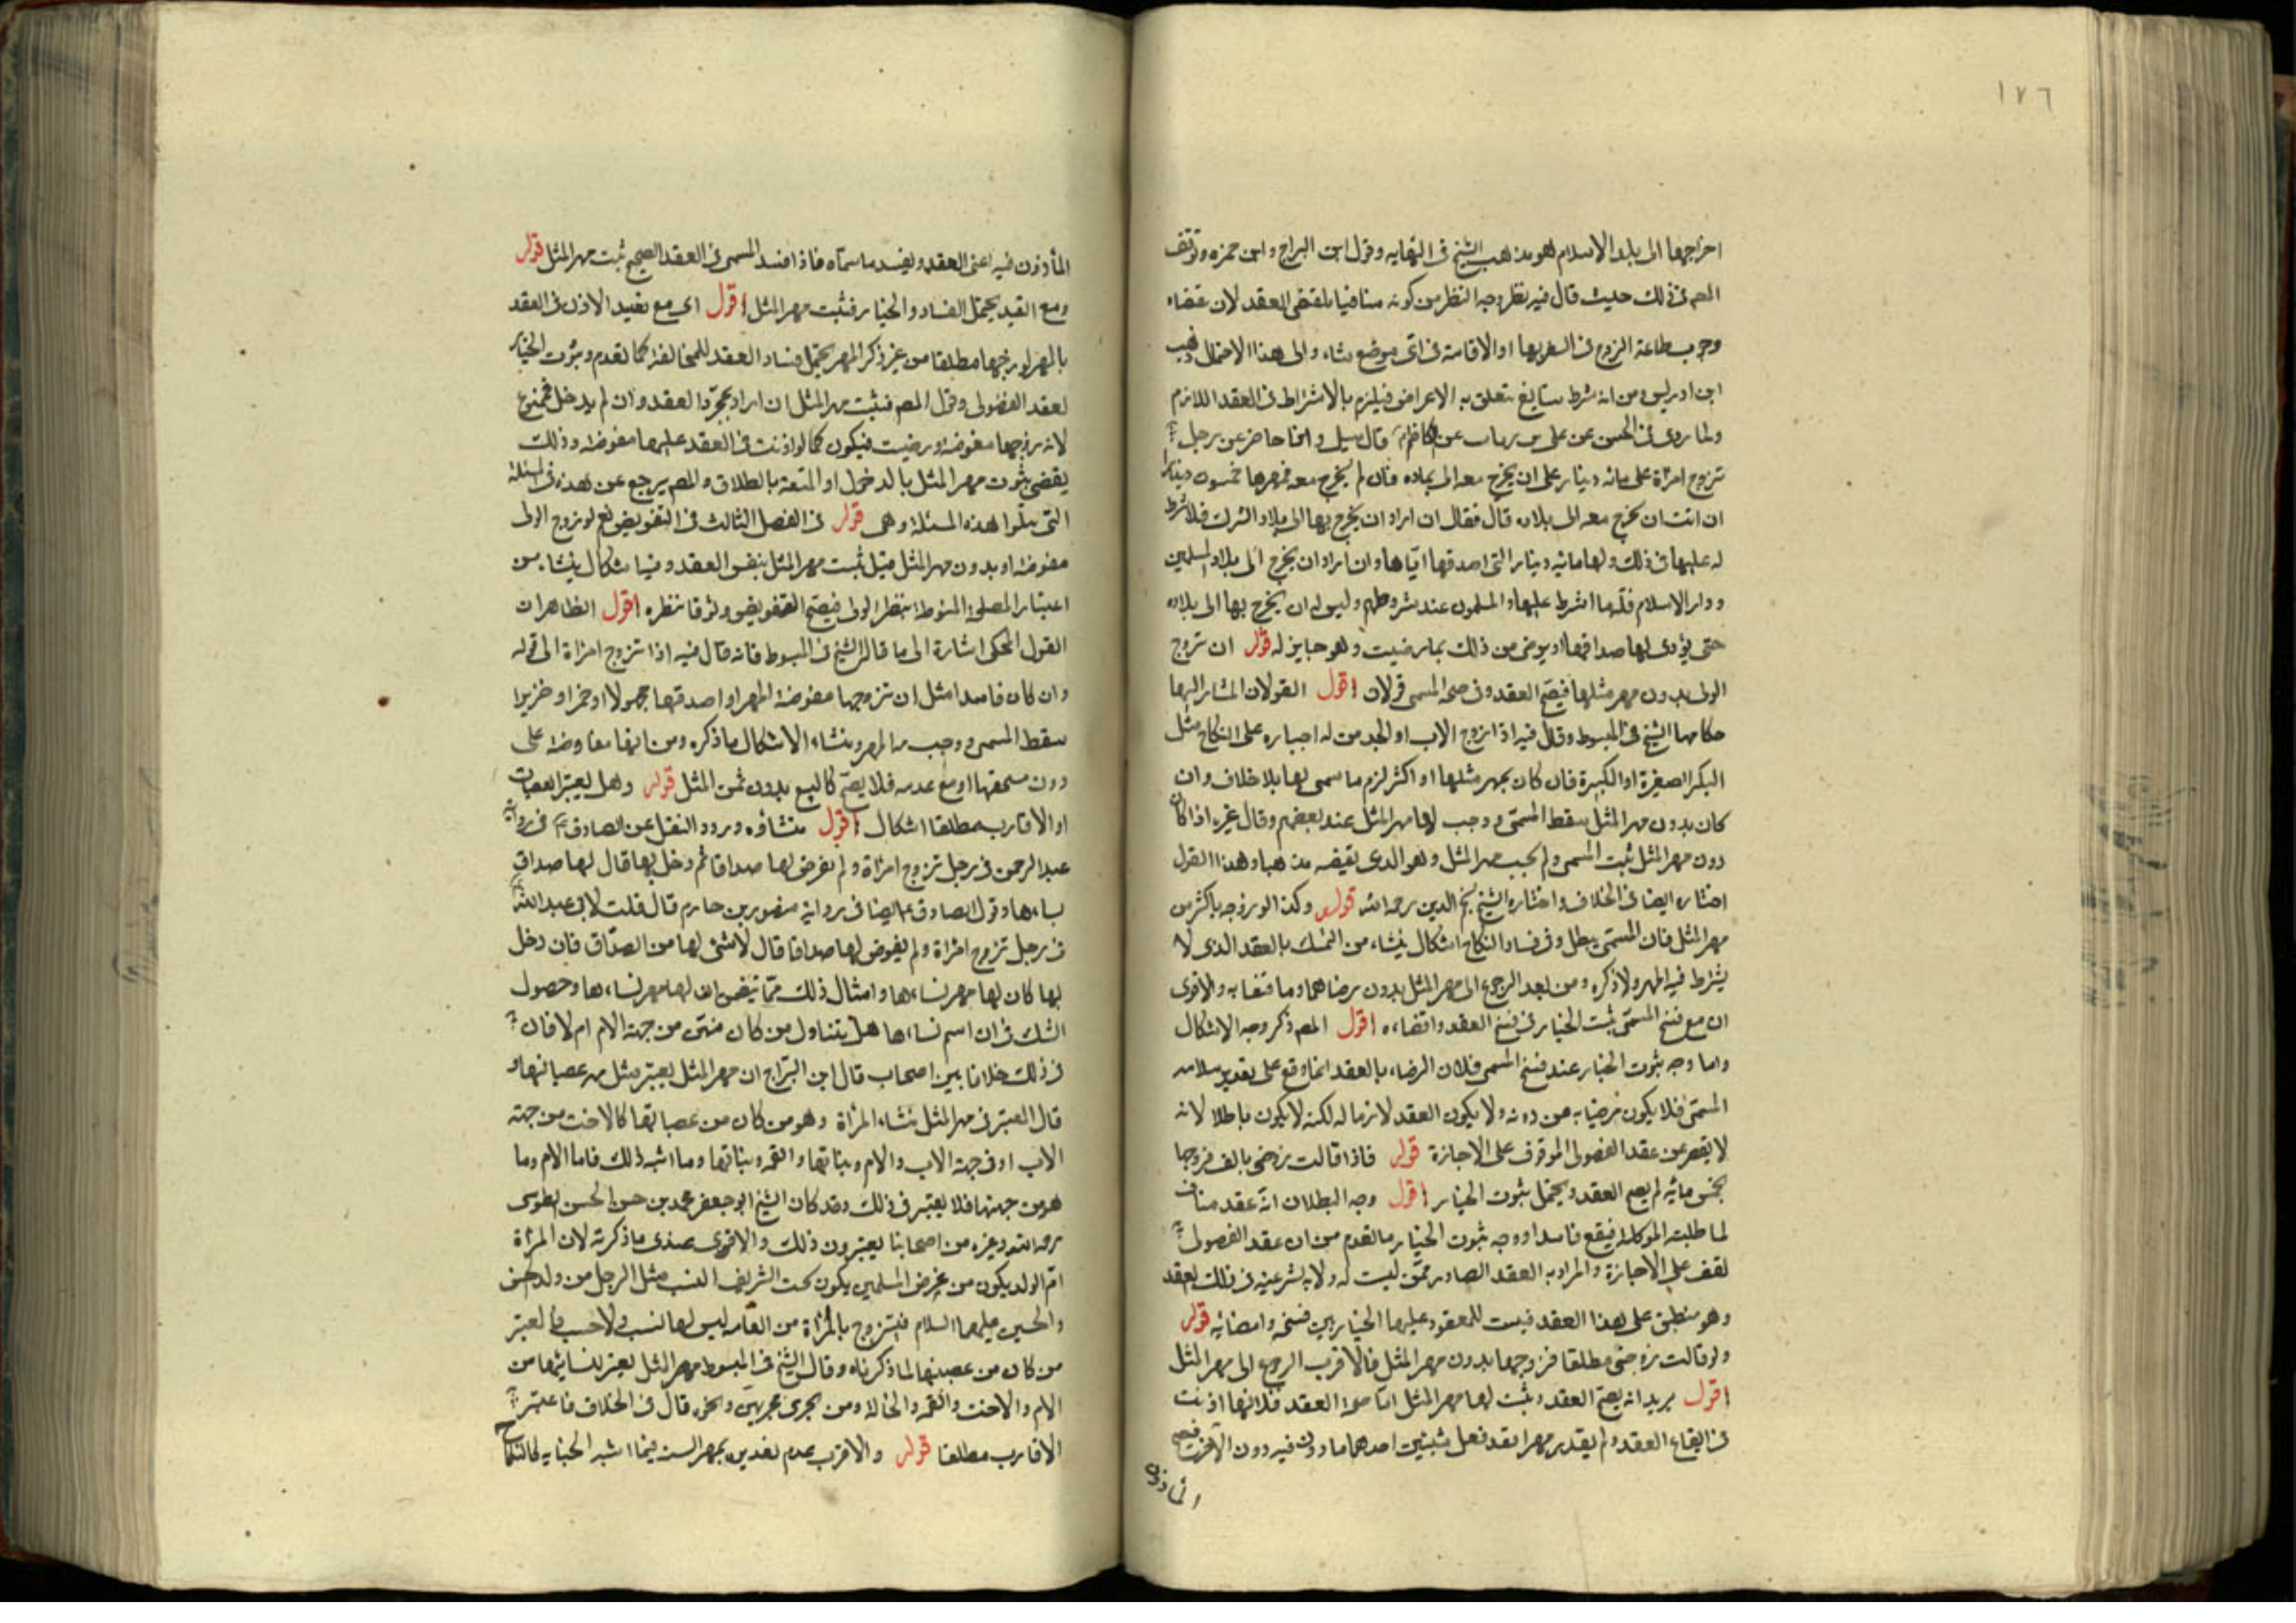 ١٧٦
اخراجها الى بلد الاسلام هو مذهب الشيخ فى النهايه وقول ابن البراج وابن حمزه وتوقف
المص فى ذلك حيث قال فيه نظر وجه النظر من كونه منافيا لمقتضى العقد لان مقتضاه
وجوب طاعة الزوج فى السفر بها او الاقامة فى اى موضع شاء والى هذا الاحتمال ذهب
ابن ادريس ومن انه شرط سايغ تتعلق به الاعراض فيلزم بالاشتراط فى العقد اللازم
ولما روى فى الحسن عن على بن رياب عن الكاظم ع قال سيل وانا حاضر عن رجل
تزوج امراة على مائة دينار على ان يخرج معه الى بلده فان لم يخرج معه فمهرها خمسون دينارا
ان ابت ان تخرج معه الى بلاده قال فقال ان اراد ان يخرج بها الى بلاد الشرك فلا شرط
له عليها فى ذلك ولها مائة دينار التى اصدقها اياها وان اراد ان يخرج الى بلاد المسلمين
ودار الاسلام فله ما اشترط عليها والمسلمون عند شروطهم وليس له ان يخرج بها الى بلاده
حتى يؤدى لها صداقها او يرضى من ذلك بما رضيت وهو جايز له قوله ان تزوج
الولى بدون مهر مثلها فيصح العقد وفى صحة المسمى قولان اقول القولان المشار اليهما
حكاهما الشيخ فى المبسوط وقال فيه اذا زوج الاب او الجد من له اجباره على النكاح مثل
البكر الصغيرة او الكبيرة فان كان بمهر مثلها او اكثر لزم ما سمى لها بلا خلاف وان
كان بدون مهر المثل سقط المسمى ووجب لها مهر المثل عند بعضهم وقال غيره اذا كان
دون مهر المثل ثبت المسمى ولم يجب مهر المثل وهو الذى يقتضيه مذهبنا وهذا القول
اختاره ايضا فى الخلاف واختاره الشيخ نجم الدين رحمه الله قوله وكذا لو زوجه باكثر من
مهر المثل فان المسمى يبطل وفى فساد النكاح اشكال ينشاء من التمسك بالعقد الذى لا
يشترط فيه المهر ولا ذكره ومن بعد الرجوع الى مهر المثل بدون رضاهما وما قضا به والاقوى
ان مع فسخ المسمى يثبت الخيار فى فسخ العقد وامضاءه اقول المص ذكر وجه الاشكال
واما وجه ثبوت الخيار عند فسخ المسمى فلان الرضاء بالعقد انما وقع على تقدير سلامه
المسمى فلا يكون مرضيا به من دونه ولا يكون العقد لازما له لكنه لا يكون باطلا لانه
لا يقصر عن عقد الفضولى الموقوف على الاجازة قوله فاذا قالت زوجنى بالف فزوجها
بخمس مائة لم يصح العقد ويحتمل ثبوت الخيار اقول وجه البطلان انه عقد مناف
لما طلبته الموكلة فيقع فاسدا ووجه ثبوت الخيار ما تقدم من ان عقد الفضولى
يقف على الاجازة والمراد به العقد الصادر ممن ليست له ولاية شرعية فى ذلك العقد
وهو منطبق على هذا العقد فيثبت للمعقود عليها الخيار بين فسخه وامضائه قوله
ولو قالت زوجنى مطلقا فزوجها بدون مهر المثل فالاقرب الرجوع الى مهر المثل
اقول يريد انه يصح العقد ويثبت لها مهر المثل اما صحة العقد فلانها اذنت
فى ايقاع العقد ولم يقدر مهرا فقد فعل شيئين احدهما ماذون فيه دون الاخر فصح
الماذون
المأذون فيه اعنى العقد ويفسد ما سماه فاذا فسد المسمى فى العقد الصحيح ثبت مهر المثل قوله
ومع القيد يحتمل الفساد والخيار فثبت مهر المثل اقول اى مع تقييد الاذن فى العقد
بالمهر لو زوجها مطلقا من غير ذكر المهر يحتمل فساد العقد للمخالفة كما تقدم وثبوت الخيار
لعقد الفضولى وقول المص فثبت مهر المثل ان اراد بمجرد العقد وان لم يدخل فممنوع
لانه زوجها مفوضة ورضيت فيكون كما لو اذنت فى العقد عليها مفوضة وذلك
يقتضى ثبوت مهر المثل بالدخول او المتعة بالطلاق والمص يرجع عن هذه فى المسئلة
التى تتلوا هذه المسئلة وهى قوله فى الفصل الثالث فى التفويض لو زوج الولى
مفوضة او بدون مهر المثل قيل ثبت مهر المثل بنفس العقد وفيه اشكال ينشا من
اعتبار المصلحة المنوطة بنظر الولى فيصح التفويض وثوقا بنظره اقول الظاهر ان
القول المحكى اشارة الى ما قاله الشيخ فى المبسوط فانه قال فيه اذا تزوج امراة الى قوله
وان كان فاسدا مثل ان تزوجها مفوضة المهر او اصدقها مجهولا او خمرا او خنزيرا
سقط المسمى ووجب مهر المهر ومنشاء الاشكال ما ذكره ومن انها معاوضة على
دون مستحقها او مع عدمه فلا يصح كالبيع بدون ثمن المثل قوله وهل يعتبر العصبات
او الاقارب مطلقا اشكال اقول منشاؤه ورود النقل عن الصادق ع فى رواية
عبد الرحمن فى رجل تزوج امراة ولم يفرض لها صداقا ثم دخل بها قال لها صداق
نساءها وقول الصادق ع ايضا فى رواية منصور بن حازم قال قلت لابى عبد الله ع
فى رجل تزوج امراة ولم يفرض لها صداقا قال لا شئ لها من الصداق فان دخل
بها كان لها مهر نساءها وامثال ذلك مما تتضمن ان لها مهر نساءها وحصول
الشك فى ان اسم نساءها هل يتناول من كان منهن من جهة الام ام لا فان
فى ذلك خلافا بين اصحاب قال ابن البراج ان مهر المثل يعتبر مثل مهر عصباتها و
قال المعتبر فى مهر المثل نساء المراة وهو من كان من عصباتها كالاخت من جهة
الاب او من جهة الاب والام وبناتها والعمة وبناتها وما اشبه ذلك فاما الام وما
هو من جهتها فلا يعتبر فى ذلك وقد كان الشيخ ابو جعفر محمد بن حسن الطوسى
رحمه الله وغيره من اصحابنا يعتبرون ذلك والاقوى عندى ما ذكرته لان المراة
ام الولد يكون من عرض المسلمين يكون تحت الشريف النسب مثل الرجل من ولد حسن
والحسين عليهما السلام فيتزوج بالمراة من العامة ليس لها نسب ولا حسب فالمعتبر
من كان من عصبتها لما ذكرناه وقال الشيخ فى المبسوط مهر المثل يعتبر بنسائها من
الام والاخت والعمة والخالة ومن يجرى مجريهن ونحوه قال فى الخلاف فاعتبر
الاقارب مطلقا قوله والاقرب عدم بمهر السنة فيما اشبه الجنايه كالنكاح